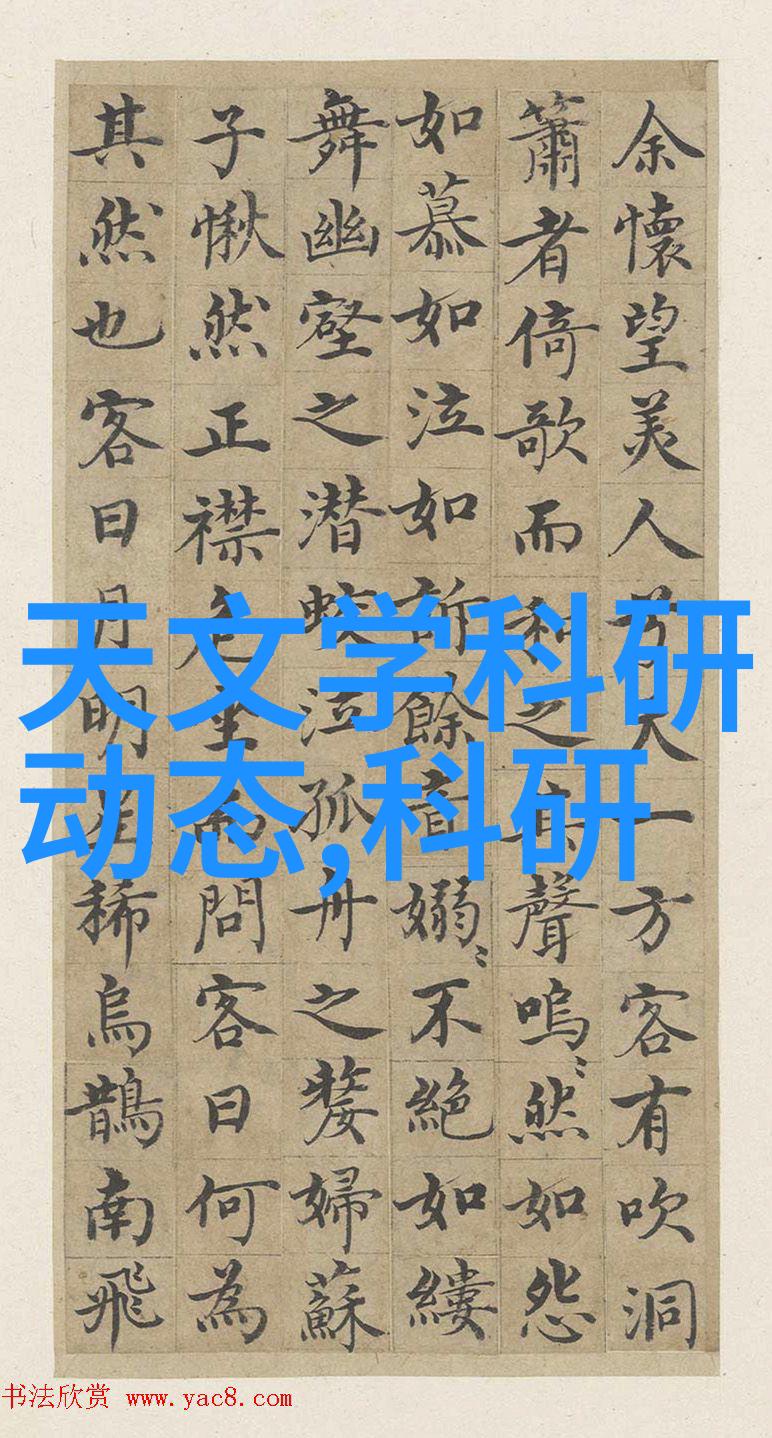 余懷望羙人兮天一方客有吹洞
簫者倚歌而和之其聲嗚〻然如怨
如慕如泣如訴餘音嫋〻不絕如縷
舞幽壑之潜蛟泣孤舟之嫠婦蘇
子愀然正襟危坐而問客曰何為
其然也客曰月明星稀烏鵲南飛
天文学科研
动态,科研
书法欣赏 www.yac8.com